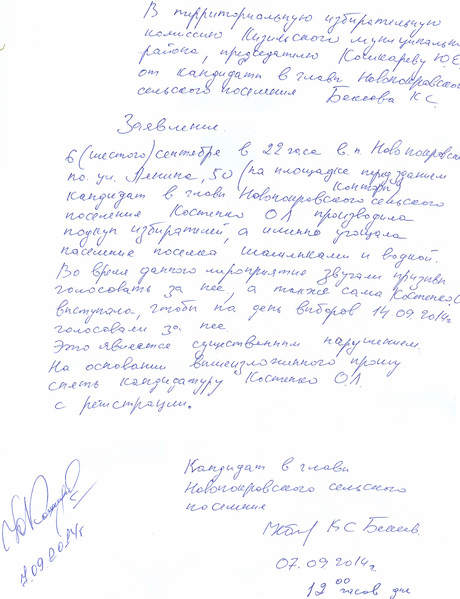 В территориальную избирательную
комиссию Кизнерского муниципальн
района, председателю Кошкареву Ю.Е.
от кандидата в главы Новопокровского
сельского поселения Бекеева К.С.
Заявление.
6 (шестого) сентября в 22 часа в п. Новопокровск
по ул. Ленина, 50 (на площадке перед зданием
конторы)
кандидат в главы Новопокровского сельского
поселения Костенко О.Л. производила
подкуп избирателей, а именно угощала
население поселка шашлыками и водкой.
Во время данного мероприятие звучали призывы
голосовать за нее, а также сама Костенко О
выступала, чтобы на день выборов 14.09.2014г
голосовали за нее.
Это является существенным нарушением.
На основании вышеизложенного прошу
снять кандидатуру Костенко О.Л.
с регистрации.
Кандидат в главы
Новопокровского сельского
поселения
К С Бекеев.
07.09.2014г.
12 00 часов дня
7.09.2014г